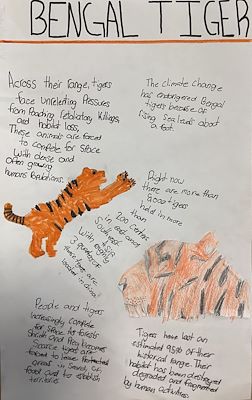 BENGAL TIGER
Across their range, tigers
face unrelenting pressures
from poaching, retaliatory killings,
and habitat loss,
These animals are forced
to compete for space
with dense and
often growing
human populations.
The climate change
has endangered Bengal
tigers because of
rising sea levels about
a foot.
Right now
there are more than
8,000 tigers
held in more
than
200 centers
in east and
Southeast
with
3 quarters of
these tigers are
located in china.
People and tigers
increasingly compete
for space. As forests
Shrink and Prey becomes
Scarce tigers are
forced to leave Protected
areas in Search of
food and to establish
territories
Tigers have lost an
estimated 95% of their
historical range. Their
habitat has been destroyed
degraded and fragmented
by human activities.